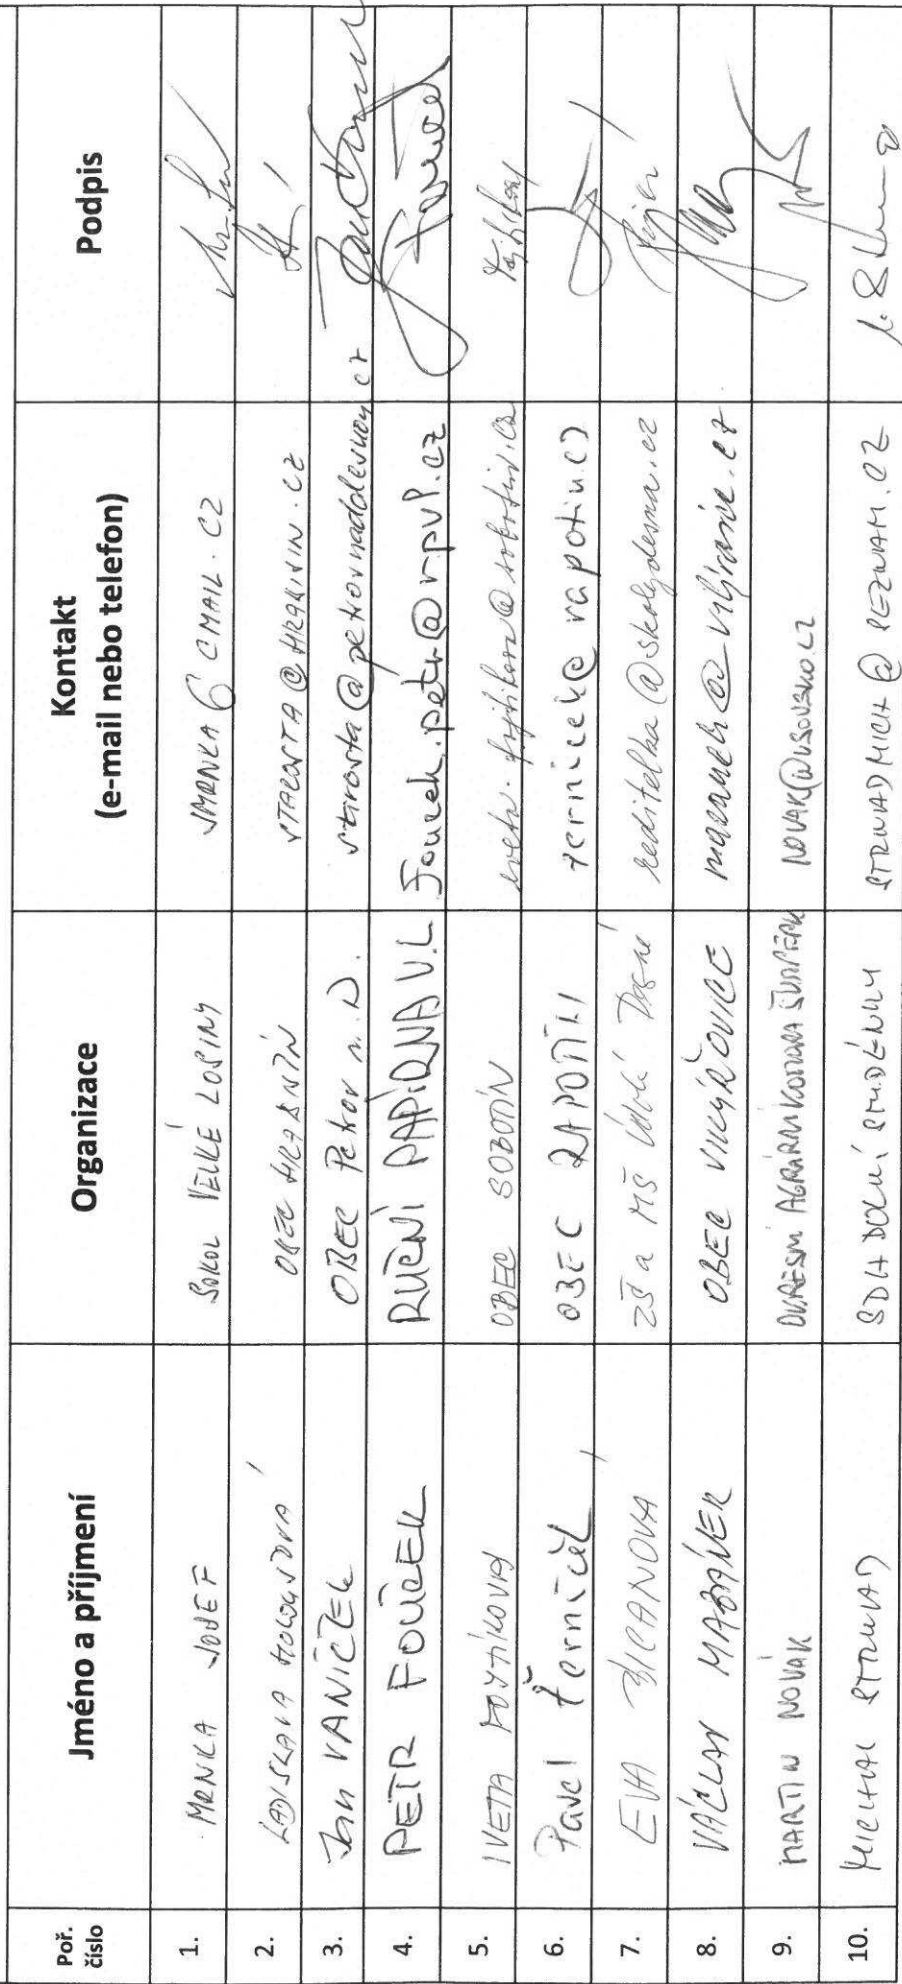 Poř. číslo Jméno a příjmení Organizace Kontakt (e-mail nebo telefon) Podpis
1. MRNKA JOSEF SOKOL VELKÉ LOSINY
2. LADISLAVA OBEC HRABIŠÍN STAROSTA@HRABISIN.CZ
3. Jan VANÍČEK OBEC Petrov n. D. starosta@petrovnaddesnou.cz
4. PETR FOUČEK RUČNÍ PAPÍRNA V.L. Foucek.petr@rpvl.cz
5. IVETA FOJTÍKOVÁ OBEC SOBOTÍN iveta.fojtikova@sobotin.cz
6. Pavel Žerníček OBEC RAPOTÍN zernicek@rapotin.cz
7. EVA ZŠ a MŠ Údolí Desné reditelka@skolydesna.cz
8. VÁCLAV MAZÁNEK OBEC VIKÝŘOVICE mazanek@vikyrovice.cz
9. MARTIN NOVÁK OKRESNÍ AGRÁRNÍ KOMORA ŠUMPERK
10. MICHAL STRNAD SDH DOLNÍ STUDÉNKY STRNADMICH@SEZNAM.CZ